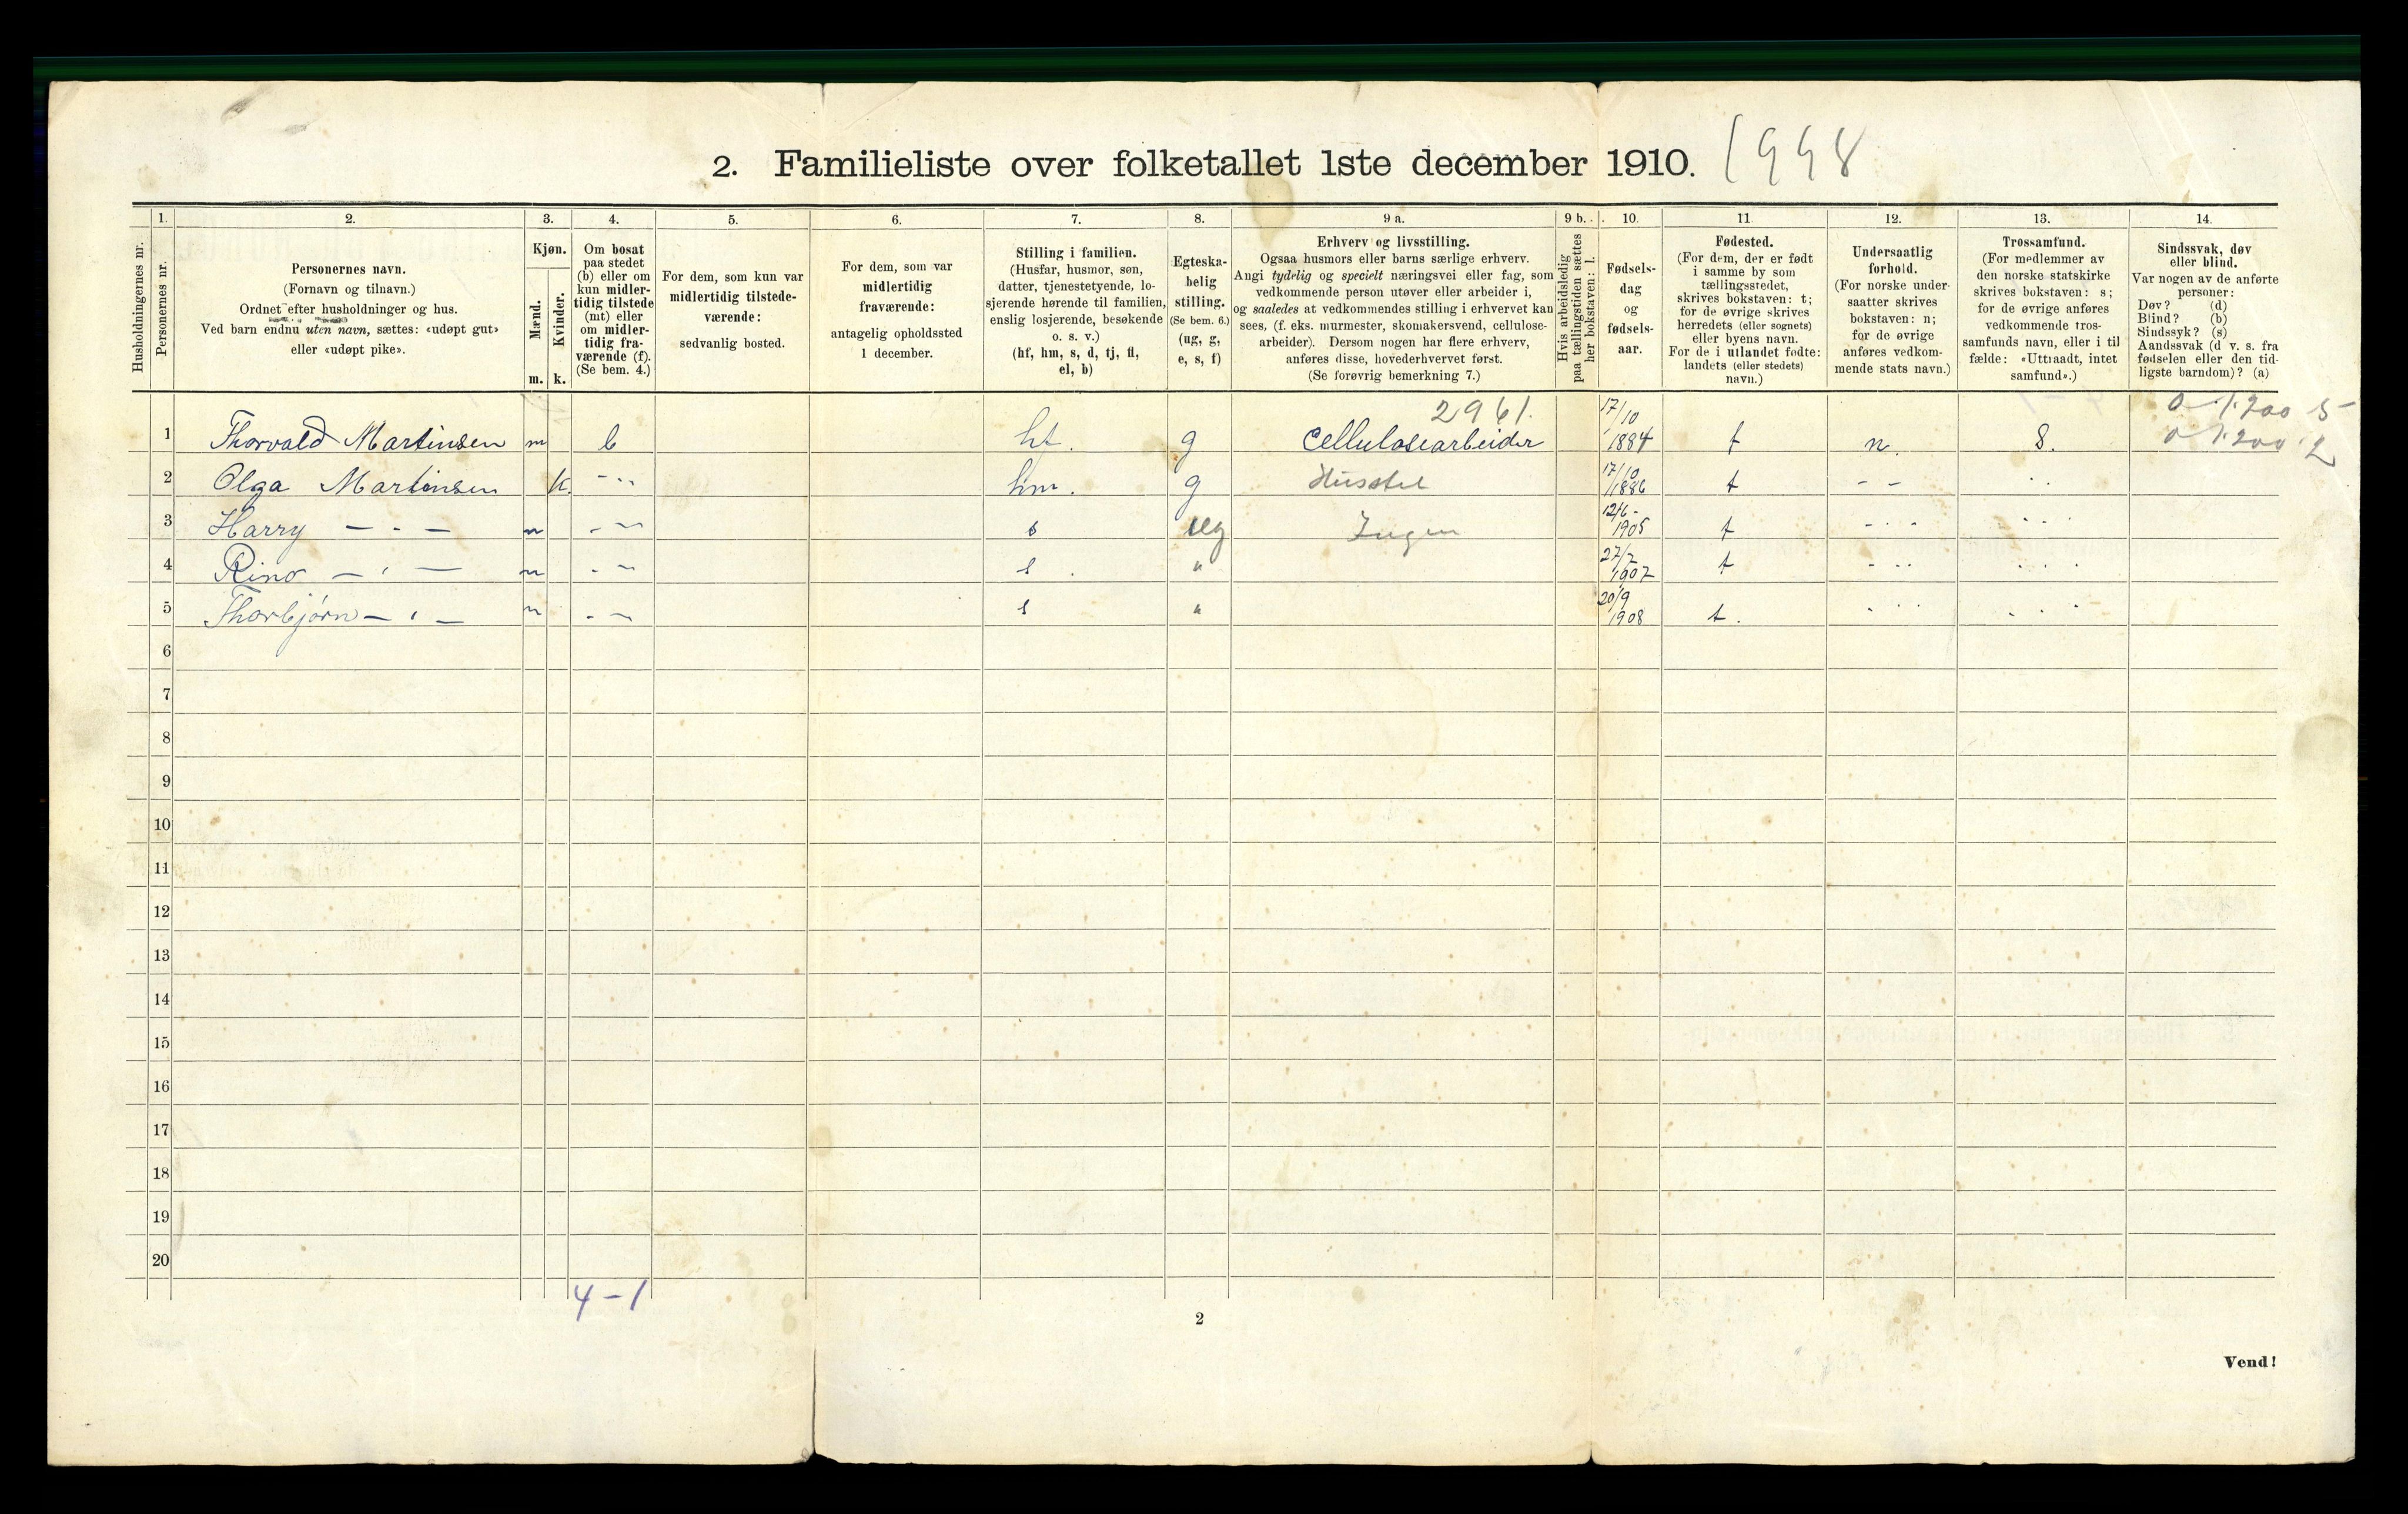 2. Familieliste over folketallet 1ste december 1910. 1998
1. 2. 3. 4. 5. 6. 7. 8. 9 a. 9 b. 10. 11. 12. 13. 14.
Husholdningernes nr.
Personernes nr.
Personernes navn.
(Fornavn og tilnavn.)
Ordnet efter husholdninger og hus.
Ved barn endnu uten navn, sættes: «udøpt gut»
eller «udøpt pike».
Kjøn.
Mænd.
Kvinder.
m. k.
Om bosat
paa stedet
(b) eller om
kun midler-
tidig tilstede
(mt) eller
om midler-
tidig fra-
værende (f).
(Se bem. 4.)
For dem, som kun var
midlertidig tilstede-
værende:
sedvanlig bosted.
For dem, som var
midlertidig
fraværende:
antagelig opholdssted
1 december.
Stilling i familien.
(Husfar, husmor, søn,
datter, tjenestetyende, lo-
sjerende hørende til familien,
enslig losjerende, besøkende
o. s. v.)
(hf, hm, s, d, tj, fl,
el, b)
Egteska-
belig
stilling.
(Se bem. 6.)
(ug, g,
e, s, f)
Erhverv og livsstilling.
Ogsaa husmors eller barns særlige erhverv.
Angi tydelig og specielt næringsvei eller fag, som
vedkommende person utøver eller arbeider i,
og saaledes at vedkommendes stilling i erhvervet kan
sees, (f. eks. murmester, skomakersvend, cellulose-
arbeider). Dersom nogen har flere erhverv,
anføres disse, hovederhvervet først.
(Se forøvrig bemerkning 7.)
Hvis arbeidsledig
paa tællingstiden sættes
her bokstaven: l.
Fødsels-
dag
og
fødsels-
aar.
Fødested.
(For dem, der er født
i samme by som
tællingsstedet,
skrives bokstaven: t;
for de øvrige skrives
herredets (eller sognets)
eller byens navn.
For de i utlandet fødte:
landets (eller stedets)
navn.)
Undersaatlig
forhold.
(For norske under-
saatter skrives
bokstaven: n;
for de øvrige
anføres vedkom-
mende stats navn.)
Trossamfund.
(For medlemmer av
den norske statskirke
skrives bokstaven: s;
for de øvrige anføres
vedkommende tros-
samfunds navn, eller i til
fælde: «Uttraadt, intet
samfund».)
Sindssvak, døv
eller blind.
Var nogen av de anførte
personer:
Døv? (d)
Blind? (b)
Sindssyk? (s)
Aandssvak (d v. s. fra
fødselen eller den tid-
ligste barndom)? (a)
2961. 0 - 1.200 5
1 Thorvald Martinsen m b hf. g Cellulosearbeider 17/10 1884 t n. S. 0 1.200 2
2 Olga Martinsen k. - " hm. g Husstel 17/10 1886 t - -
3 Harry — - — m - " s ug Ingen 12/6 - 1905 t - " -
4 Rino — ' — m - " s " 27/7 1907 t - "
5 Thorbjörn — ' — m - " s " 20/9 1908 t.
6
7
8
9
10
11
12
13
14
15
16
17
18
19
20
4 - 1
2
Vend!